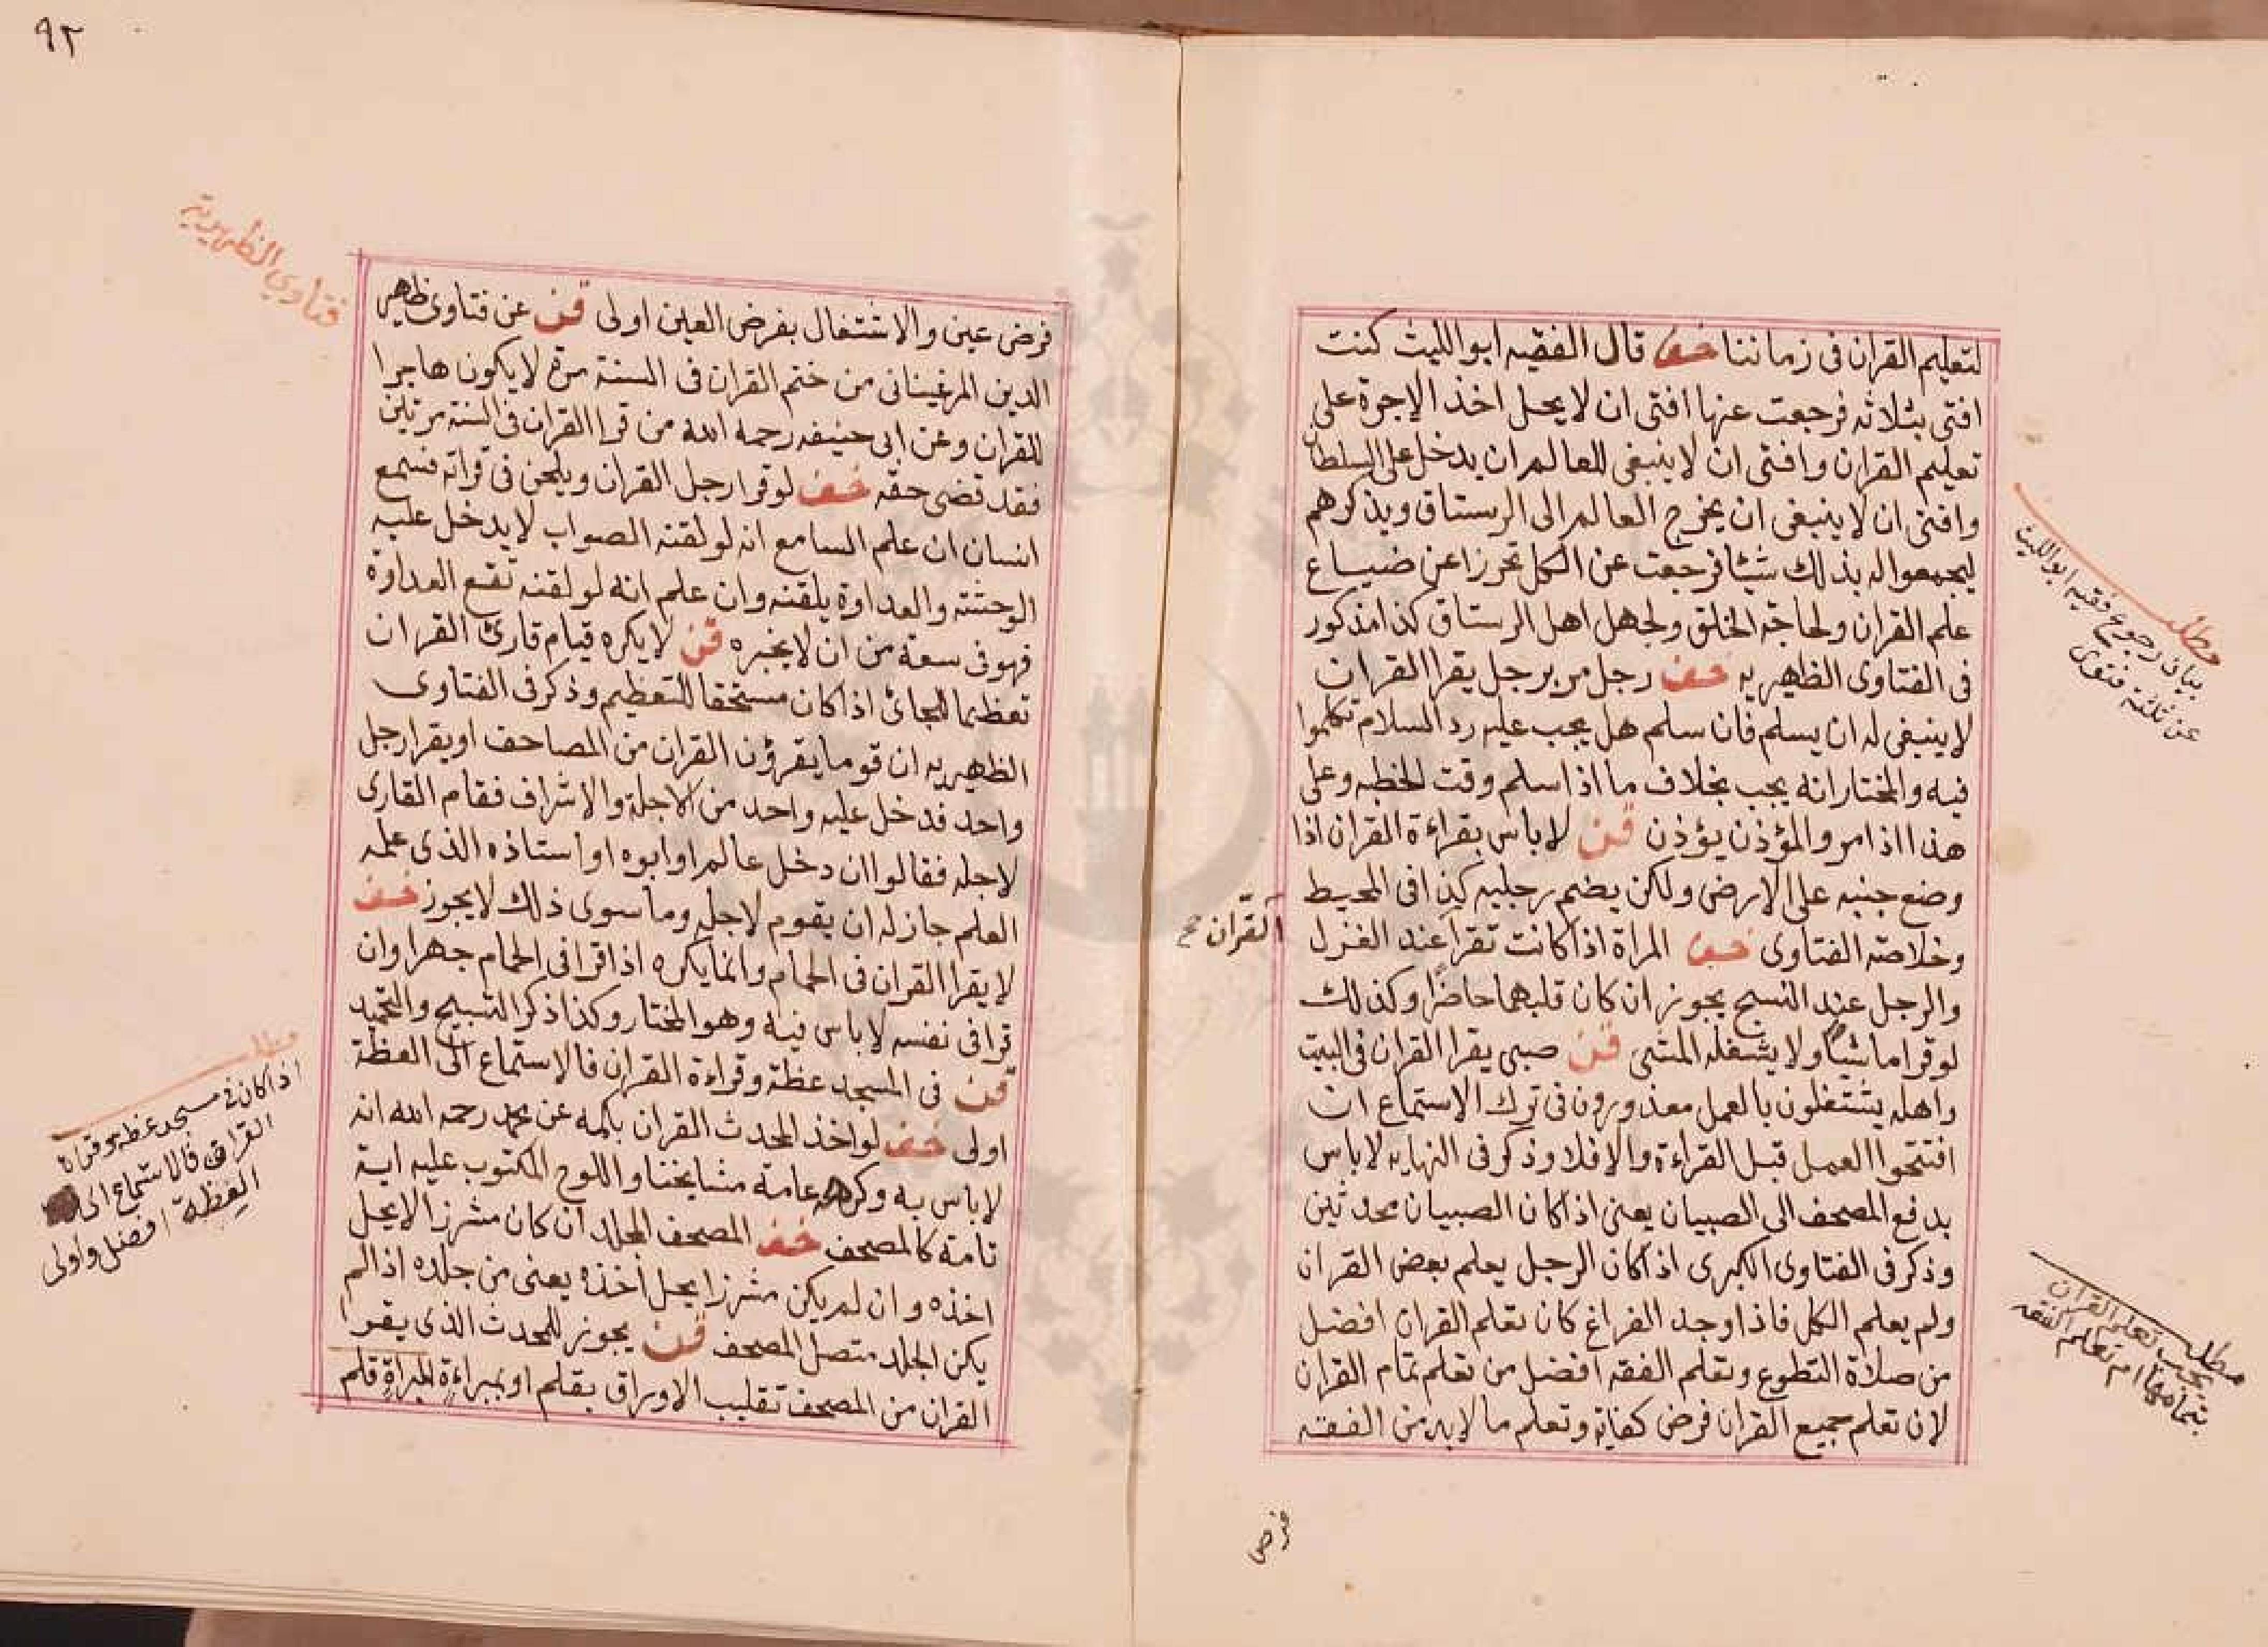 لتعليم القران فى زماننا خف قال الفقيه ابو الليث كنت
افتى بثلاثه فرجعت عنها افتى ان لا يحل اخذ الاجرة على
تعليم القران وافتى ان لا ينبغى للعالم ان يدخل على السلطان
وافتى ان لا ينبغى ان يخرج العالم الى الرستاق ويذكرهم
ليجمعوا له بذلك شيئا فرجعت عن الكل تحرزا عن ضياع
علم القران ولحاجة الخلق ولجهل اهل الرستاق كذا مذكور
فى الفتاوى الظهيريه خف رجل مر برجل يقرا القران
لا ينبغى له ان يسلم فان سلم هل يجب عليه رد السلام تكلموا
فيه والمختار انه يجب بخلاف ما اذا سلم وقت الخطبه وعلى
هذا اذا مر والمؤذن يؤذن قن لا باس بقراءة القران اذا
وضع جنبه على الارض ولكن يضم رجليه كذا فى المحيط
وخلاصة الفتاوى خف المراة اذا كانت تقرا عند الغزل
القرآن صح
والرجل عند النسج يجوز ان كان قلبهما حاضرا وكذلك
لو قرا ماشيا ولا يشغله المشى قن صبى يقرا القران فى البيت
واهله يشتغلون بالعمل معذورون فى ترك الاستماع ان
افتتحوا العمل قبل القراءة والافلا وذكر فى النهايه لا باس
بدفع المصحف الى الصبيان يعنى اذا كان الصبيان محدثين
وذكر فى الفتاوى الكبرى اذا كان الرجل يعلم بعض القران
ولم يعلم الكل فاذا وجد الفراغ كان تعلم القران افضل
من صلاة التطوع وتعلم الفقه افضل من تعلم تمام القران
لان تعلم جميع القران فرض كفاية وتعلم ما لا بد من الفقه
فرض
مطلب
بيان رجوع فقيه ابو الليث
عن ثلثة فتوى
مطلب
يجب تعلم القران
بتمامها ام تعلم الفقه
٩٢
فتاوي الظهيرية
فرض عين والاشتغال بفرض العين اولى قن عن فتاوى ظهير
الدين المرغينانى من ختم القران فى السنة مرة لا يكون هاجرا
للقران وعن ابى حنيفه رحمه الله من قرا القران فى السنة مرتين
فقد قضى حقه خف لو قرا رجل القران ويلحن فى قراته فسمع
انسان ان علم السامع انه لو لقنه الصواب لا يدخل عليه
الوحشة والعداوة يلقنه وان علم انه لو لقنه تقع العداوة
فهو فى سعة من ان لا يخبره قن لا يكره قيام قارئ القران
تعظيما للجائى اذا كان مستحقا للتعظيم وذكر فى الفتاوى
الظهيريه ان قوما يقرؤن القران من المصاحف او يقرا رجل
واحد فدخل عليه واحد من الاجلة والاشراف فقام القارى
لاجله فقالوا ان دخل عالم او ابوه او استاذه الذى علمه
العلم جاز له ان يقوم لاجله وما سوى ذلك لا يجوز خف
لا يقرا القران فى الحمام وانما يكره اذا قرا فى الحمام جهرا وان
قرا فى نفسه لا باس فيه وهو المختار وكذا ذكر التسبيح والتحميد
قن فى المسجد عظة وقراءة القران فالاستماع الى العظة
اولى خف لو اخذ المحدث القران بكمه عن محمد رحمه الله انه
لا باس به وكرهه عامة مشايخنا واللوح المكتوب عليه اية
تامة كالمصحف خف المصحف المجلد ان كان مشرزا لا يحل
اخذه وان لم يكن مشرزا يحل اخذه يعنى من جلده اذا لم
يكن الجلد متصل المصحف قن يجوز للمحدث الذى يقرا
القران من المصحف تقليب الاوراق بقلم او بمبراءة المبراة قلم
مطلب
اذا كان فى مسجد عظة وقراة
القران فالاستماع الى
العظة افضل واولى